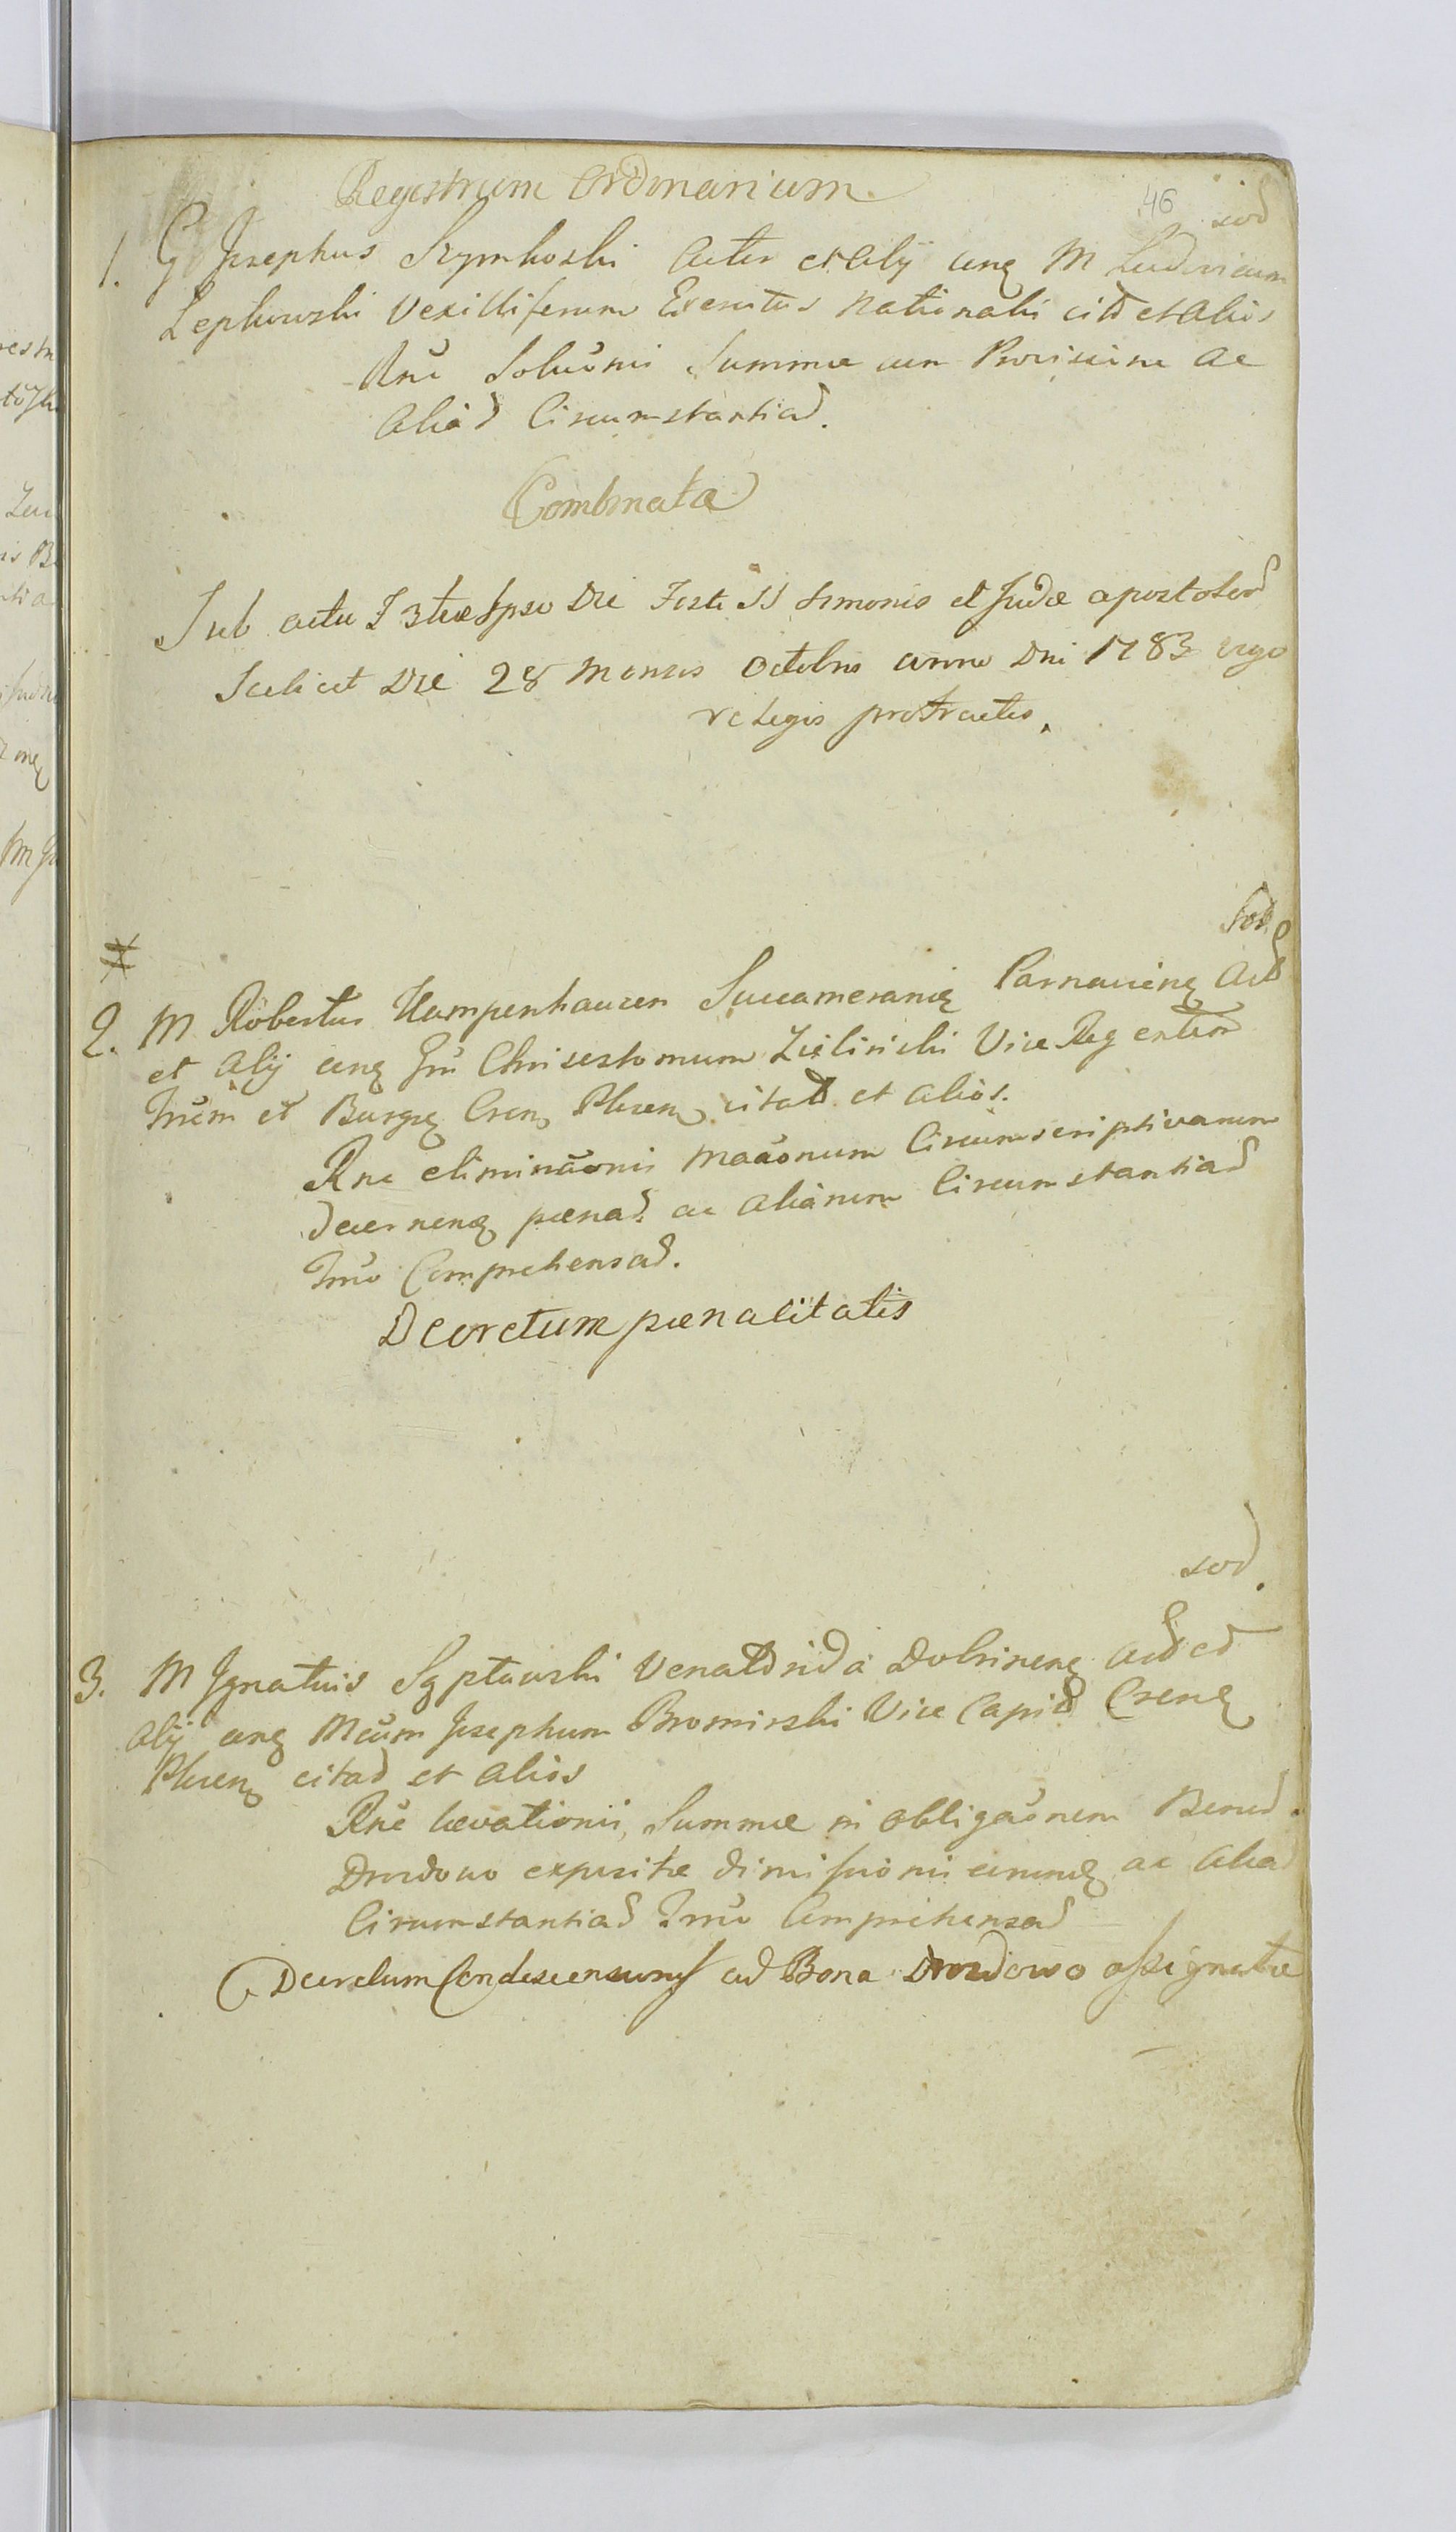 Registrum Ordinarium.
46
sod
1. G Josephus Szymkoski Actor et alij cnq M Ludovicum
Lepkowski Vexilliferum Exercitus Nationalis citd et Alios
Rne Soluōnis Summae cum Provisione ac
Aliad Circumstantiad.
Combinata
Sub actu I 3tiae Ipso Die Festi SS Simonis et Judae apostolord
Scilicet Die 28 Mensis Octobris anno Dni 1783 vigo
relegis protractis.
Sod
2. M Robertus Kampenhauzen Succameranią Parnaviēnq Actd
et Alij cnq Gn Chrisostomum Zielinski Vice Regentem
Trrēm et Burgrq Crenq Plocenq citatd et Alios.
Rne eliminaōnis Maōonum Circumscriptivarum
Decernenq paenad. ac Aliarum Circumstantiad
Trrō Comprehensad.
Decretum paenalitatis
sod.
3. M Ignatius Sęptawski Venatd nida Dobrinenq Actd et
Alij cnq Mcum Josephum Bromirski Vice Capitd Crenq
Plocenq citad et Alios
Rne Levationis, Summae in obligaōnem Bonod.
Drozdowo expositae dimissionis eorundq ac Aliad
Circumstantiad Trrō Comprehensad
Decretum Condescensionis ad Bona Drozdowo assignatae